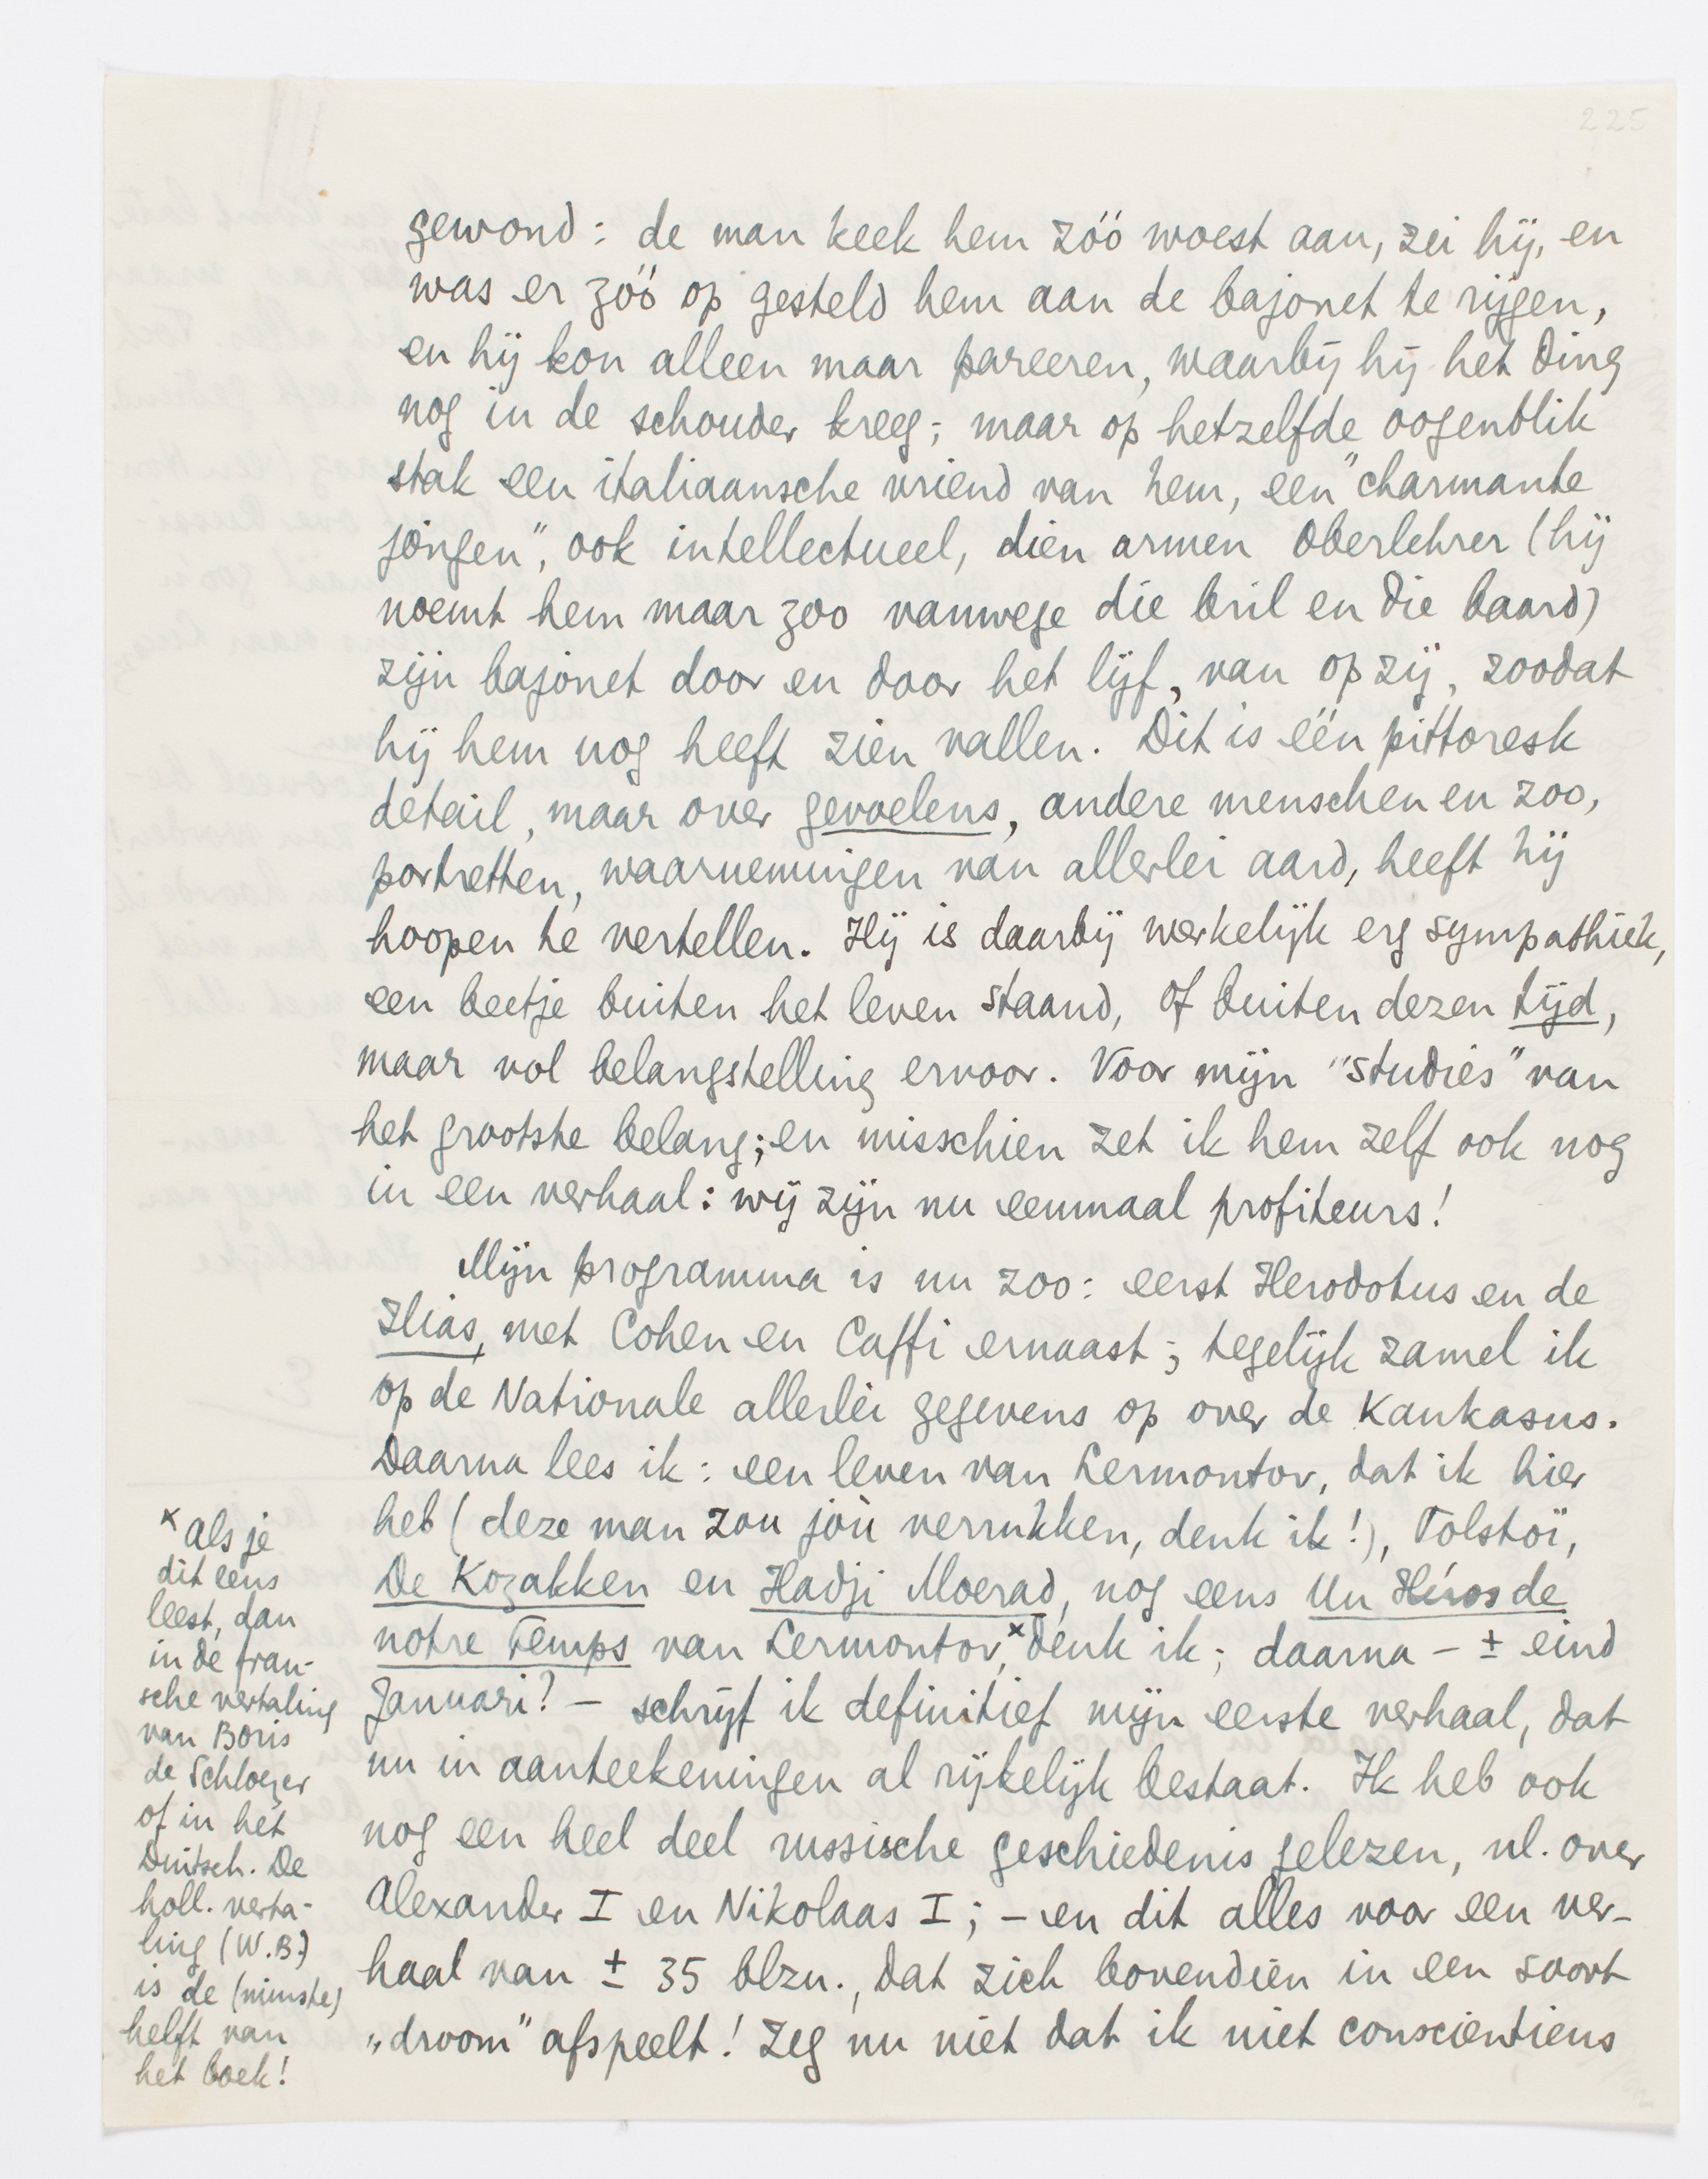 225
gewond: de man keek hem zóó woest aan, zei hij, en
was er zóó op gesteld hem aan de bajonet te rijgen,
en hij kon alleen maar pareeren, waarbij hij het ding
nog in de schouder kreeg; maar op hetzelfde oogenblik
stak een italiaansche vriend van hem, een "charmante
jongen", ook intellectueel, dien armen Oberlehrer (hij
noemt hem maar zoo vanwege die bril en die baard)
zijn bajonet door en door het lijf, van op zij, zoodat
hij hem nog heeft zien vallen. Dit is één pittoresk
detail, maar over gevoelens, andere menschen en zoo,
portretten, waarnemingen van allerlei aard, heeft hij
hoopen te vertellen. Hij is daarbij werkelijk erg sympathiek,
een beetje buiten het leven staand, of buiten dezen tijd,
maar vol belangstelling ervoor. Voor mijn "studies" van
het grootste belang; en misschien zet ik hem zelf ook nog
in een verhaal: wij zijn nu eenmaal profiteurs!
Mijn programma is nu zoo: eerst Herodotus en de
Ilias, met Cohen en Caffi ernaast; tegelijk zamel ik
op de Nationale allerlei gegevens op over de Kaukasus.
Daarna lees ik: een leven van Lermontov, dat ik hier
heb (deze man zou jòù verrukken, denk ik!), Tolstoï,
De Kozakken en Hadji Moerad, nog eens Un Héros de
notre Temps van Lermontov,x denk ik; daarna - ± eind
Januari? - schrijf ik definitief mijn eerste verhaal, dat
nu in aanteekeningen al rijkelijk bestaat. Ik heb ook
nog een heel deel russische geschiedenis gelezen, nl. over
Alexander I en Nikolaas I; - en dit alles voor een ver-
haal van ± 35 blzn., dat zich bovendien in een soort
„droom" afspeelt! Zeg nu niet dat ik niet conscientieus
x Als je
dit eens
leest, dan
in de fran-
sche vertaling
van Boris
de Schloezer
of in het
Duitsch. De
holl. verta-
ling (W.B.)
is de (minste)
helft van
het boek!